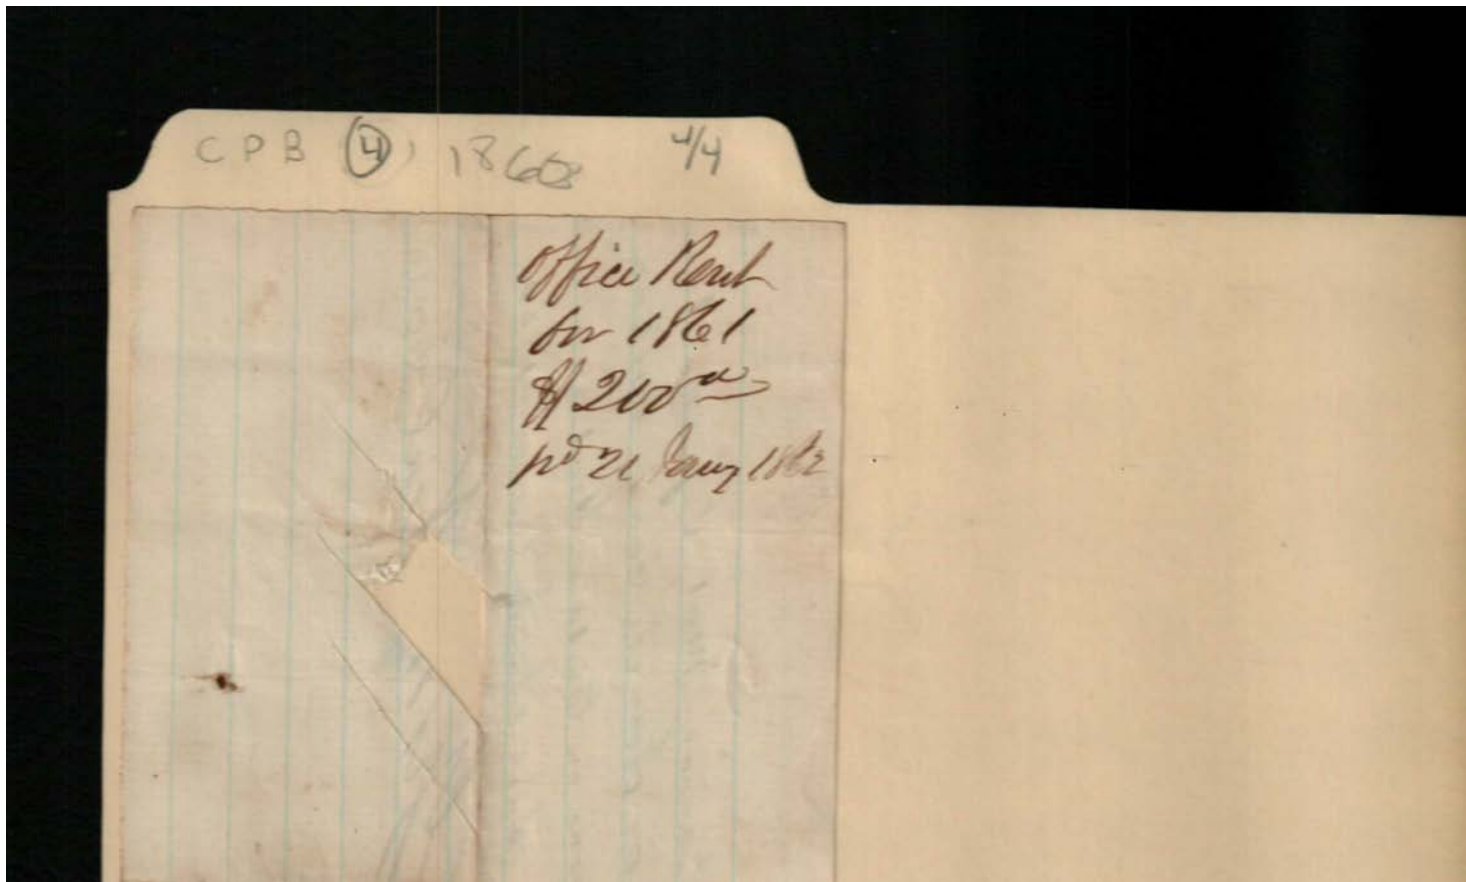 CPB (4) 1860s 4/4
Office Rent
for 1861
$200 00
pd 21 Jany 1862